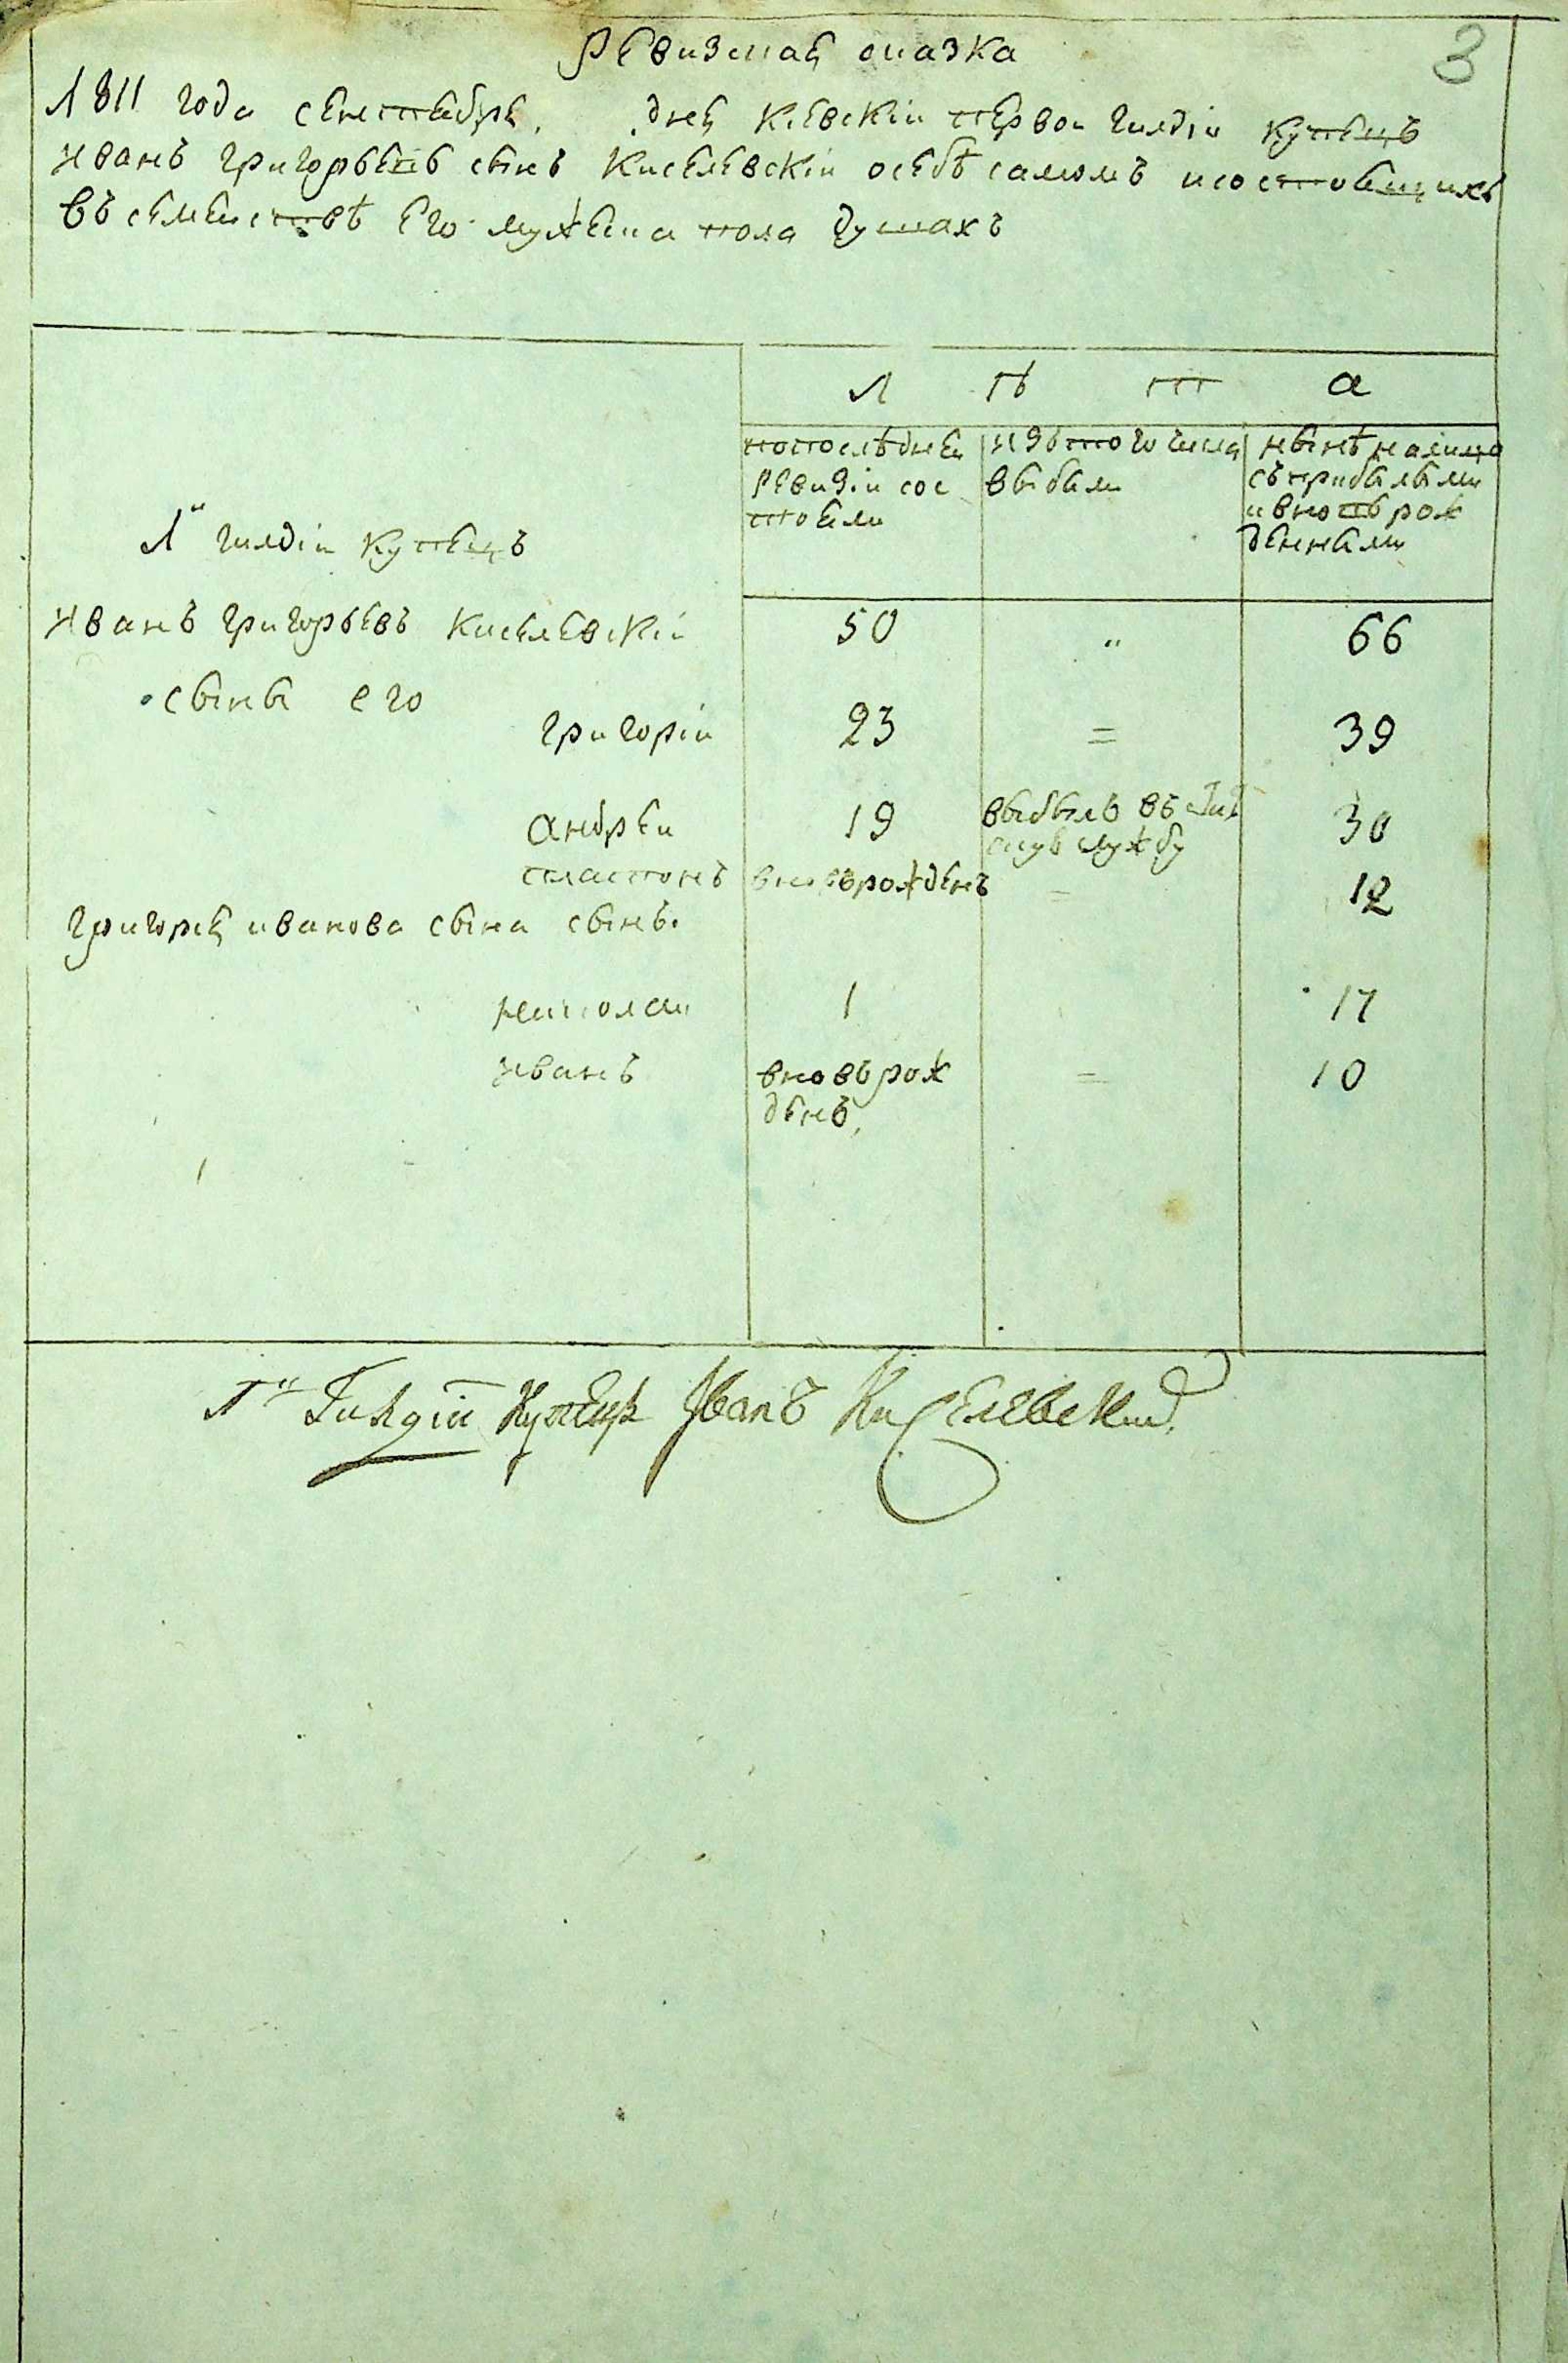 3
Ревизная сказка
1811 года сентебря дня Киевскій первой гилдіи купецъ
иванъ григорьевъ сынъ Киселевскій осебѣ самомъ исостоящихъ
въ семействѣ его мужеска пола душахъ
л ѣ т а
попоследней ревизіи состояли
изътого числа выбыли
нынѣ налицо съ прибылыми ивновь рожденными
1й гилдіи купецъ
иванъ григорьевъ киселевскій 50 " 66
сыны его
григорій 23 = 39
андрей 19 выбылъ въ службу 30
платонъ вновьрожденъ = 12
григорія иванова сына сынъ
николай 1 17
иванъ вновьрожденъ = 10
1й Гилдіи Купецъ Иванъ Киселевский